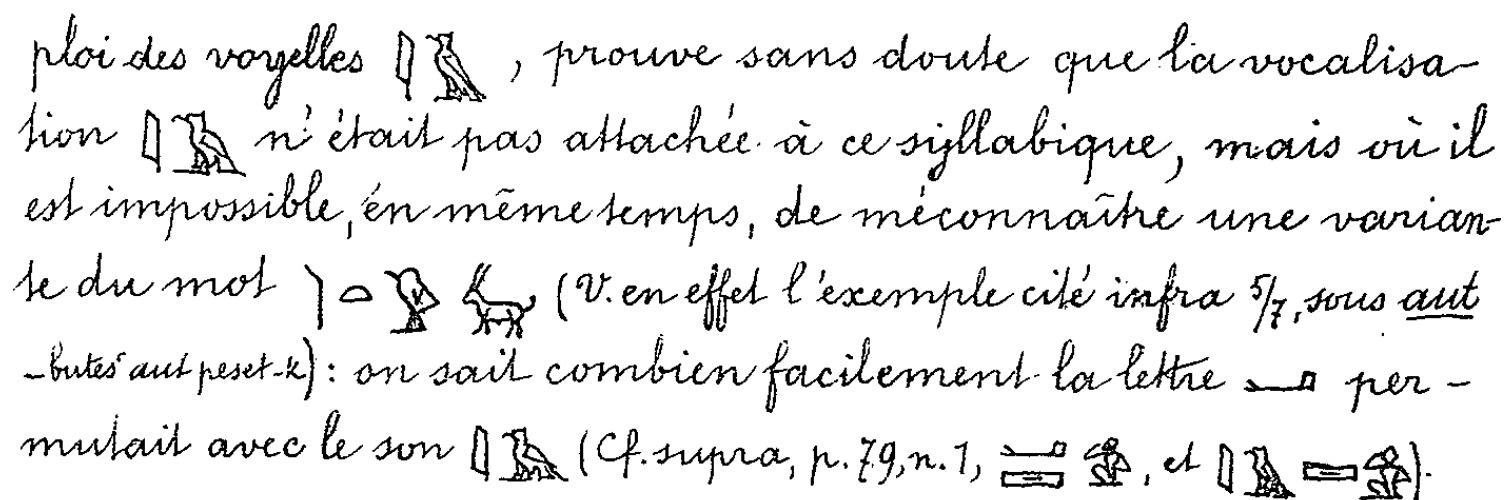 ploi des voyelles 𓇋𓅓, prouve sans doute que la vocalisa-
tion 𓇋𓅓 n'était pas attachée à ce syllabique, mais où il
est impossible, en même temps, de méconnaître une varian-
te du mot (V. en effet l'exemple cité infra 5/7, sous aut
-butes aut peset-k) : on sait combien facilement la lettre 𓂝 per-
mutait avec le son (Cf. supra, p. 79, n. 1, et ).